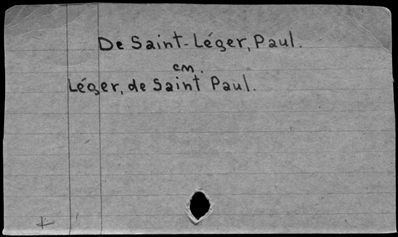 De Saint-Léger, Paul.
cm.
Léger, de Saint Paul.